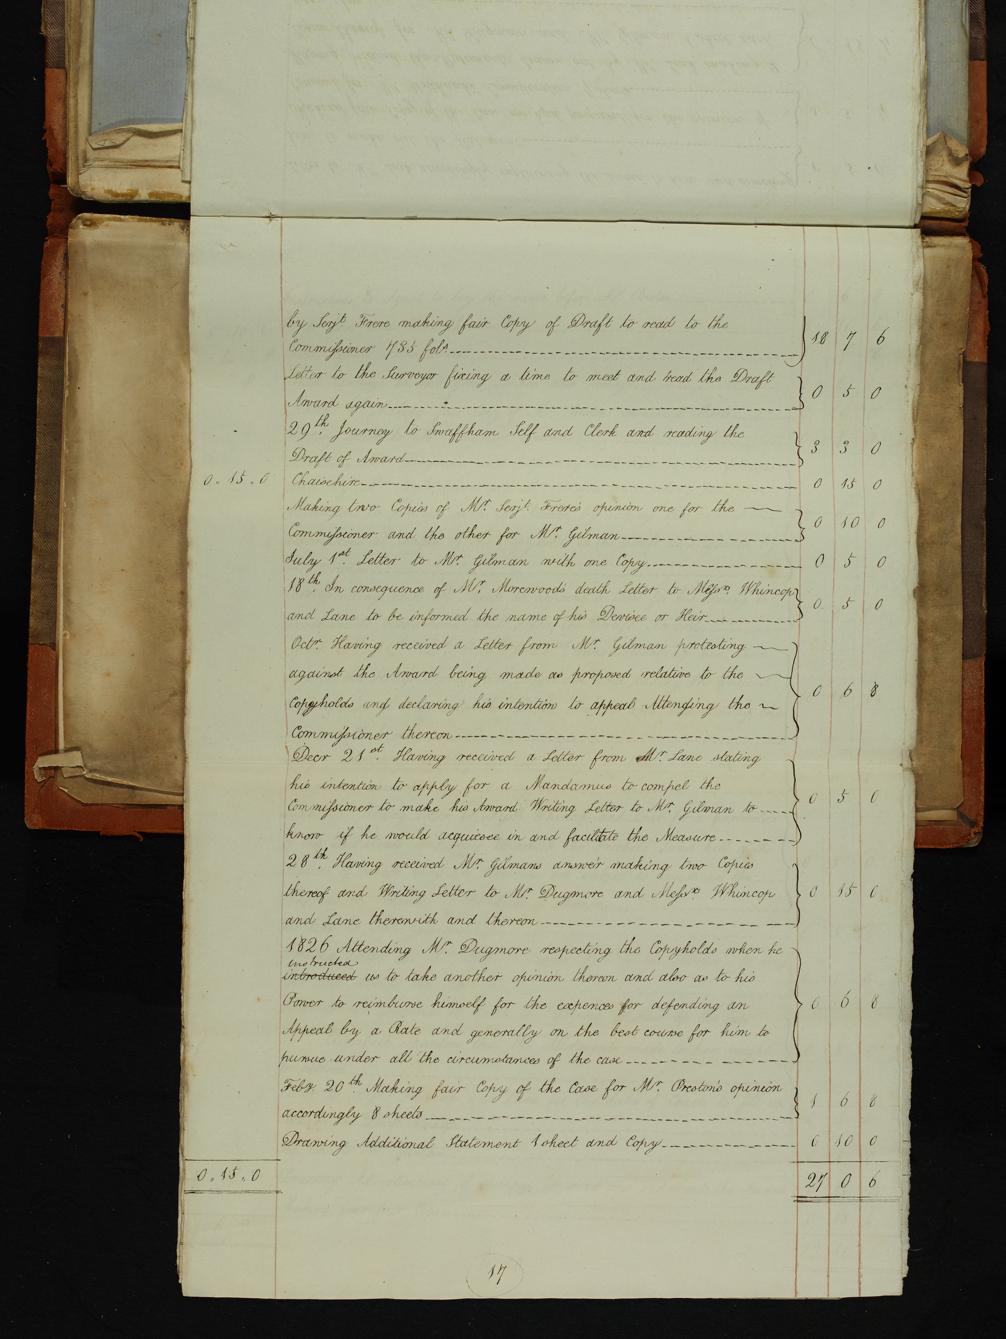 by Serjt. Frere making fair Copy of Draft to read to the
Commissioner 735 fols. 18 7 6
Letter to the Surveyor fixing a time to meet and read the Draft
Award again 0 5 0
29th. Journey to Swaffham Self and Clerk and reading the
Draft of Award 3 3 0
0. 15. 0 Chaisehire 0 15 0
Making two Copies of Mr. Serjt. Frere's opinion one for the
Commissioner and the other for Mr. Gilman 0 10 0
July 1st. Letter to Mr. Gilman with one Copy 0 5 0
18th. In consequence of Mr. Morewood's death Letter to Messrs. Whincop
and Lane to be informed the name of his Devisee or Heir 0 5 0
Octr. Having received a Letter from Mr. Gilman protesting
against the Award being made as proposed relative to the
Copyholds and declaring his intention to appeal Attending the
Commissioner thereon 0 6 8
Decr 21st. Having received a Letter from Mr. Lane stating
his intention to apply for a Mandamus to compel the
Commissioner to make his Award Writing Letter to Mr. Gilman to
know if he would acquiesce in and facilitate the Measure 0 5 0
28th. Having received Mr. Gilmans answer making two Copies
thereof and Writing Letter to Mr. Dugmore and Messrs. Whincop
and Lane therewith and thereon 0 15 0
1826 Attending Mr. Dugmore respecting the Copyholds when he
instructed
introduced us to take another opinion thereon and also as to his
Power to reimburse himself for the expences for defending an
Appeal by a Rate and generally on the best course for him to
pursue under all the circumstances of the case 0 6 8
Feby 20th. Making fair Copy of the Case for Mr. Preston's opinion
accordingly 8 sheets 1 6 8
Drawing Additional Statement 1 sheet and Copy 0 10 0
0. 15. 0 27 0 6
17